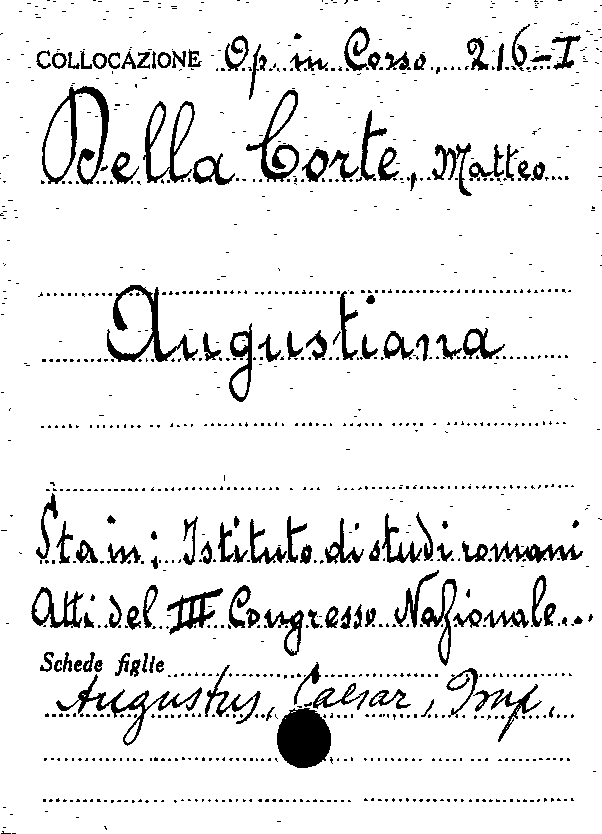 COLLOCAZIONE Op. in Corso, 216-I
Della Corte, Matteo
Augustiana
Sta in: Istituto di studi romani
Atti del III Congresso Nazionale...
Schede figlie
Augustus, Caesar, Imp.